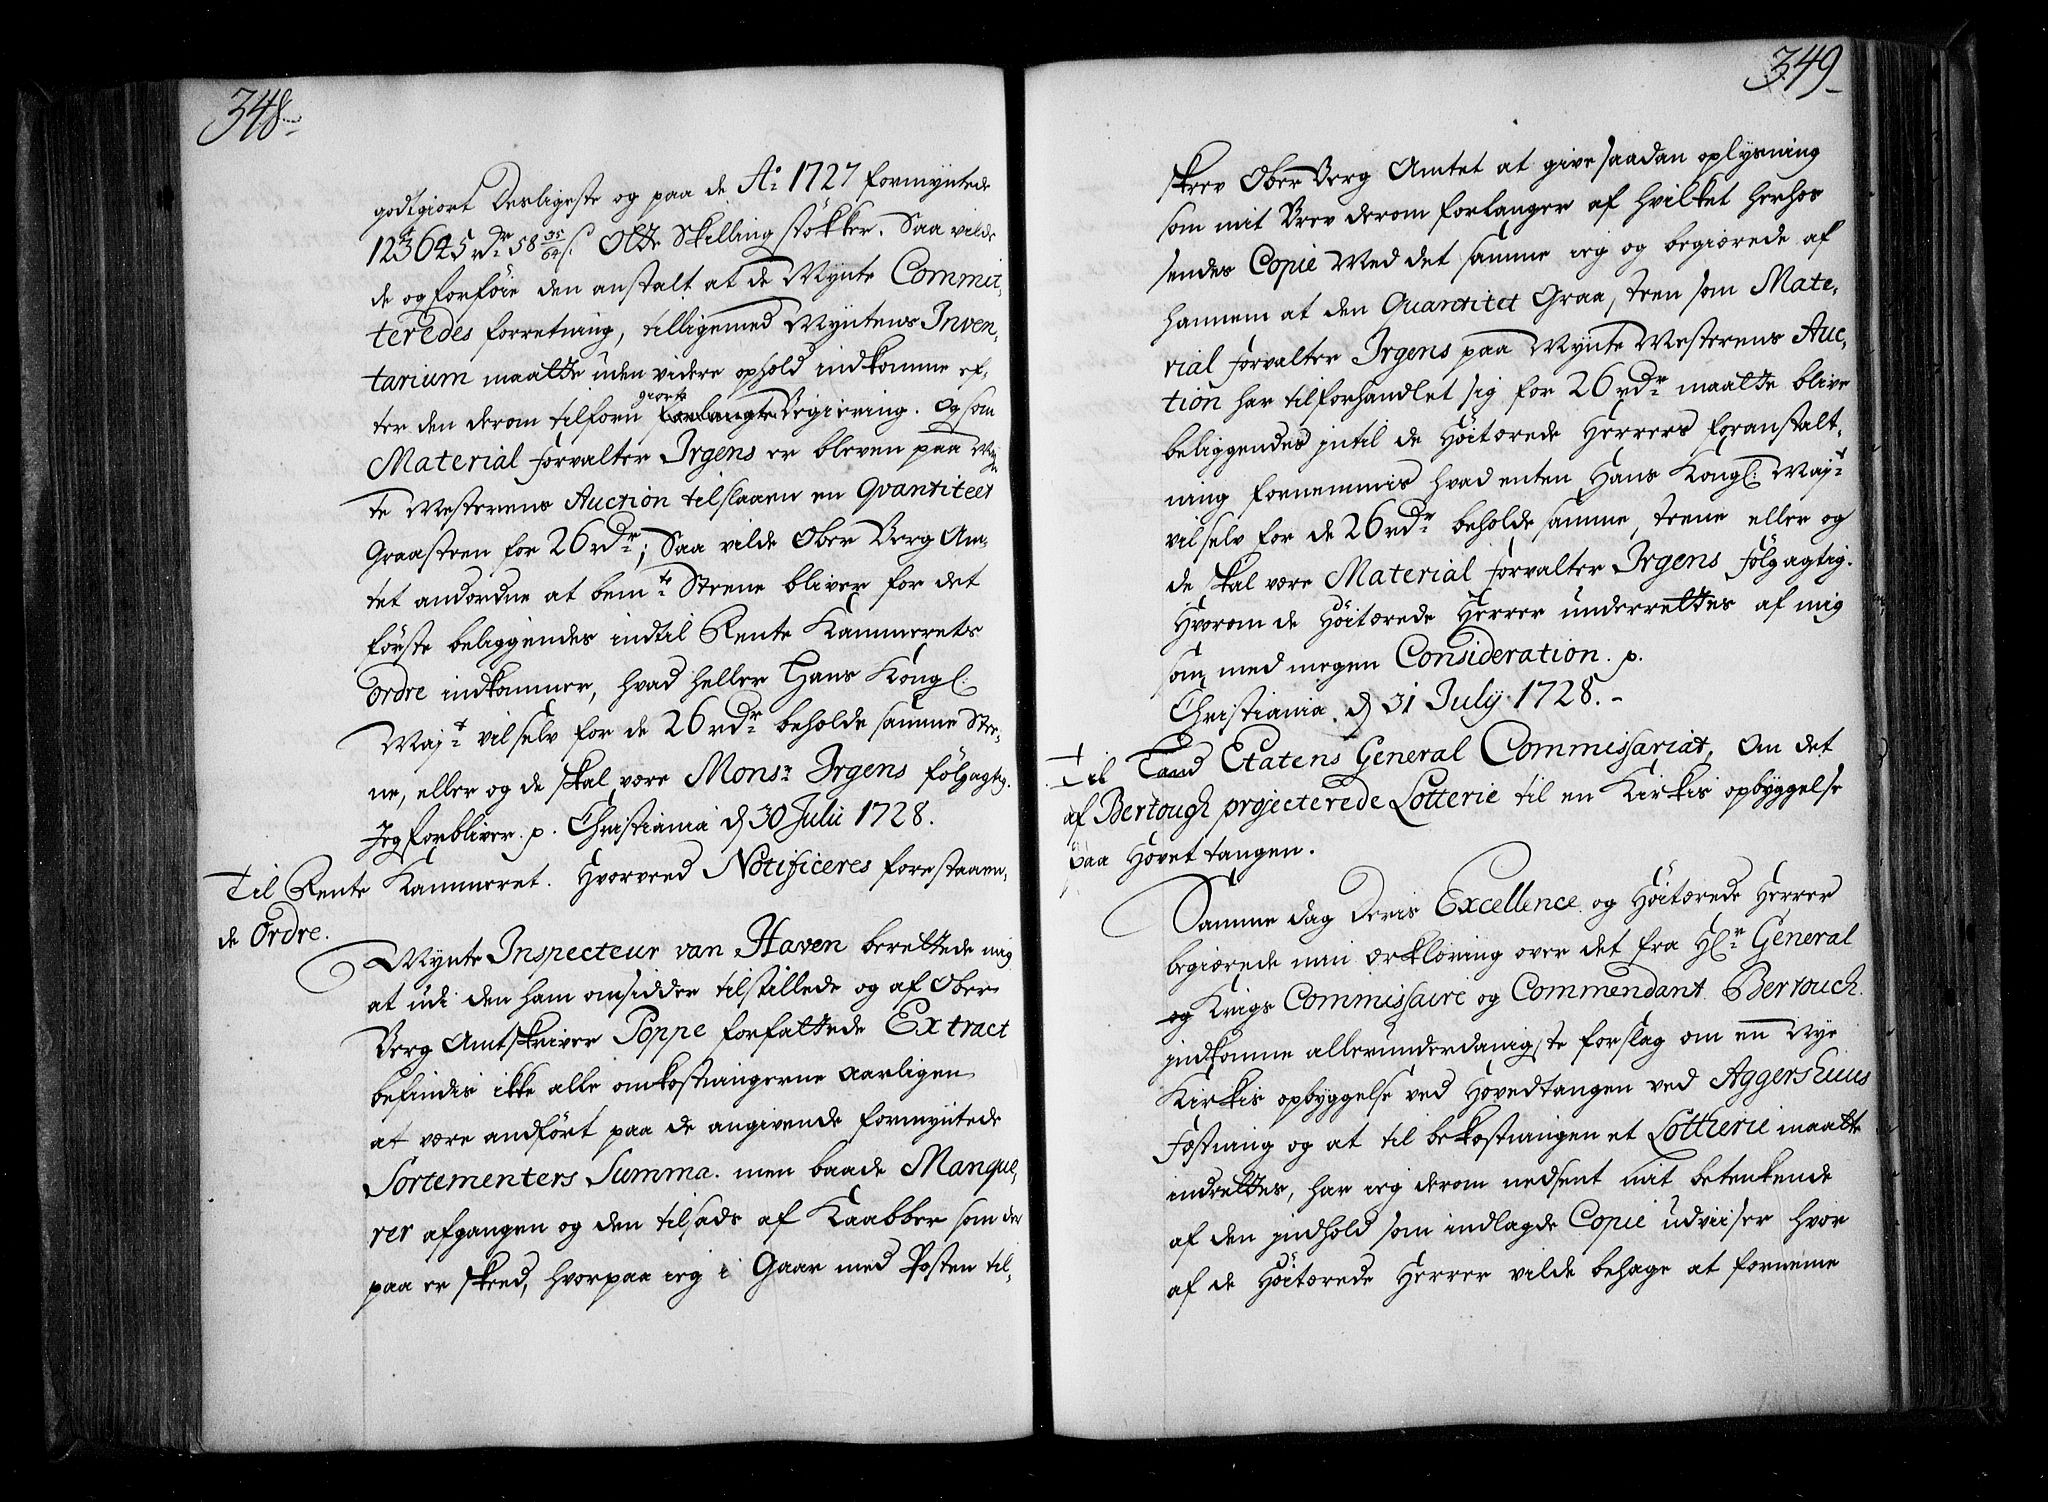 348
godtgiort Desligeste og paa de A° 1727 formyntede
123645 rdr 58 35/64 s. Otte Skilling støkker. Saa vilde
de og forføie den anstalt at de Mynte Commit-
teredes forretning, tilligemed Myntens Inven-
tarium maatte uden videre ophold indkomme ef-
ter den derom tilforn giorte forlangte Begiering. Og som
Material forvalter Irgens er bleven paa Myn
te Mesterens Auction tilslaaen en Qvantiteet
Graasteen for 26 rdr; Saa vilde Ober Berg Am-
tet andordne at bemte Steene bliver for det
første beliggendes indtil Rente Kammerets
ordre indkommer, hvad heller Hans Kongl:
Majt vil selv for de 26 rdr beholde samme Stee-
ne, eller og de skal være Monsr Irgens følgagtig.
Jeg forbliver p. Christiania d 30 Julii 1728.
Til Rente Kammeret. Hvorved Notificeres forestaaen-
de Ordre.
Mynte Inspecteur van Haven berettede mig
at udi den ham omsidder tilstillede og af Ober
Berg Amtskriver Poppe forfattede Extract
befindis ikke alle omkostningerne aarligen
at være andført paa de angivende formyntede
Sortementers Summa. men baade Manque-
rer afgangen og den tilsads af Kaabber som der
paa er skeed, hvorpaa ieg i Gaar med Posten til-
349
skrev Ober Berg Amtet at give saadan oplysning
som mit Brev derom forlanger af hvilket herhos
sendes Copie Med det samme ieg og begierede af
hannem at den Quantitet Graa, steen som Mate-
rial forvalter Irgens paa Mynte Mesterens Auc-
tion har tilforhandlet sig for 26 rdr maatte blive
beliggendes intil de Høitærede Herrers foranstalt-
ning fornemmis hvad enten Hans Kongl: Majt
vil selv for de 26 rdr beholde samme, steene eller og
de skal være Material forvalter Irgens følgagtig.
Hvorom de Høitærede Herrer underrettes af mig
som med megen Consideration. p.
Christiania. d 31 July 1728.
Til Land Etatens General Commissariat. An det
af Bertough projecterede Lotterie til en Kirkis opbyggelse
paa Hovet tangen.
Samme dag Deris Excellence og Høitærede Herrer
begierede min erklæring over det fra Hr General
og Krigs Commissaire og Commendant Bertouch
indkomne allerunderdanigste forslag om en Nye
Kirkis opbyggelse ved Hovedtangen ved Aggershuus
Fæstning og at til bekostningen et Lotterie maatte
indrettes, har ieg derom nedsent mit betenkende
af den indhold som indlagde Copie udviiser hvor
af de Høitærede Herrer vilde behage at fornemme